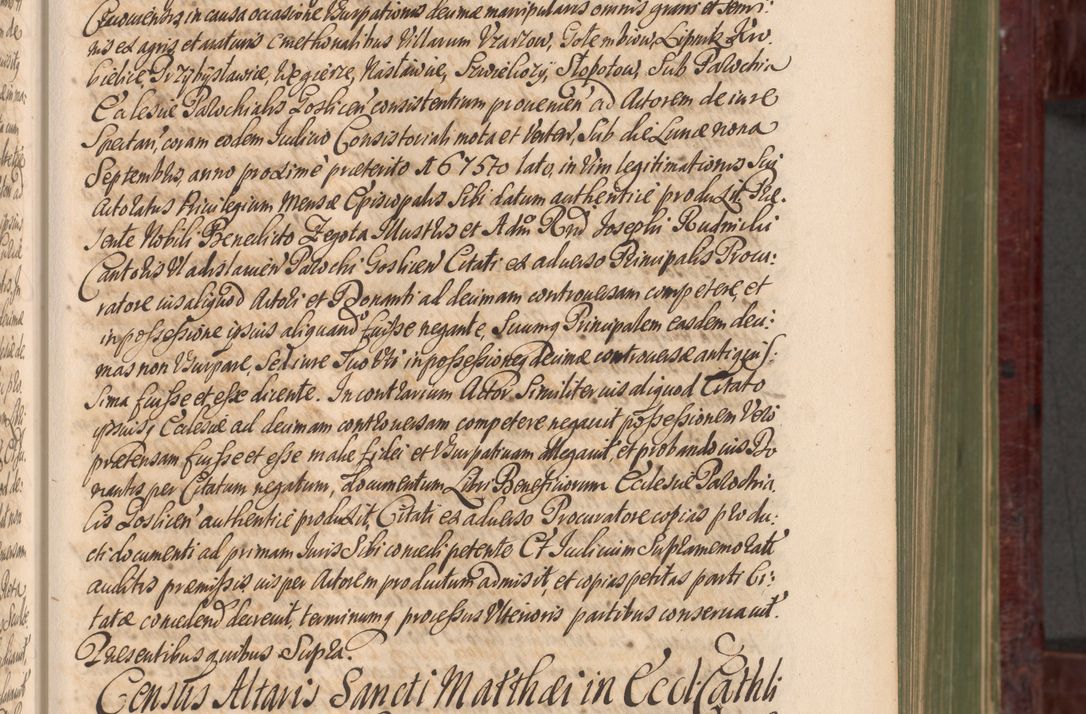 Cracoviensis, in causa occasione Usurpationis decimæ manipularis omnis grani et semi:
nis ex agris et araturis cmethonalibus Villarum Uzarzow, Golembiow, Lipnik, Kro:
bielice Przybysławice, Węgierce, Nasławice, Szwieliczy, Słopotow, Sub Parochia
Ecclesiæ Parochialis Goslicen consistentium provenien ad Actorem de iure
Spectan, coram eodem Iudicio Consistoriali mota et verten, Sub die Lunæ nona
Septembris, anno proxime præterito 1675to lato, in vim legitimationis Sui
Actoratus Privilegium Mensæ Episcopalis Sibi datum authentice produxit. Præ:
sente Nobili Benedicto Zegota Illustris et Adm Rnd Josephi Rudnicki
Cantoris Vladislavien Parochi Goslicen Citati ex adverso Principalis Procu:
ratore ius aliquod Actori et Donanti ad decimam controversam competere, et
in possessione ipsius aliquando fuisse negante, Suumq Principalem easdem deci:
mas non Usurpare, Sed iure Suo Uti in possessioneq decimæ controversæ antiquis:
sima fuisse et esse dicente. In contrarium Actor Similiter ius aliquod Citato
ipsiusq Ecclesiæ ad decimam controversam competere negavit possessionem Vero
prætensam fuisse et esse malæ fidei et Usurpativam allegavit, et probando ius Do
nantis per Citatum negatum, documentum Libri Beneficiorum Ecclesiæ Parochia
lis Goslicen authentice produxit, Citati ex adverso Procuratore copias produ:
cti documenti ad primam Iuris Sibi concedi petente Et Iudicium Supramemorat
auditis præmissis ius per Actorem productum admisit, et copias petitas parti Ci:
tatæ concedend decrevit, terminumq processus Ulterioris partibus conservavit.
Præsentibus quibus Supra.
Census Altaris Sancti Matthæi in Eccl: Cathli